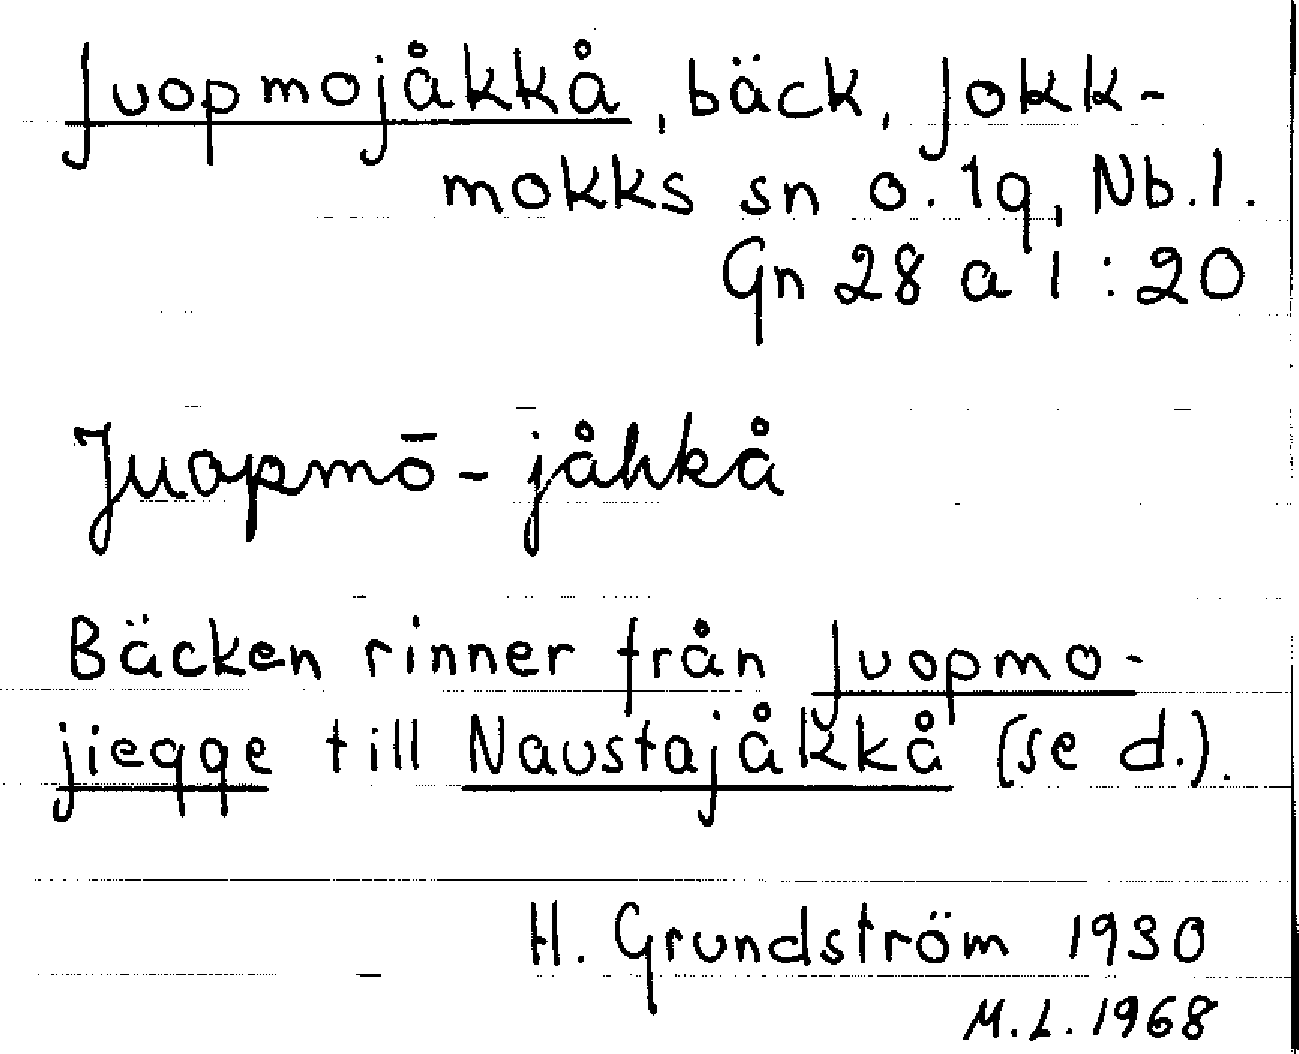 Juopmojåkkå, bäck, Jokk-
mokks sn o. lg, Nb.l.
Gn 28 a 1:20
Juopmō-jåhkå
Bäcken rinner från Juopmo-
jiegge till Naustajåkkå (se d.).
H. Grundström 1930
M.L. 1968